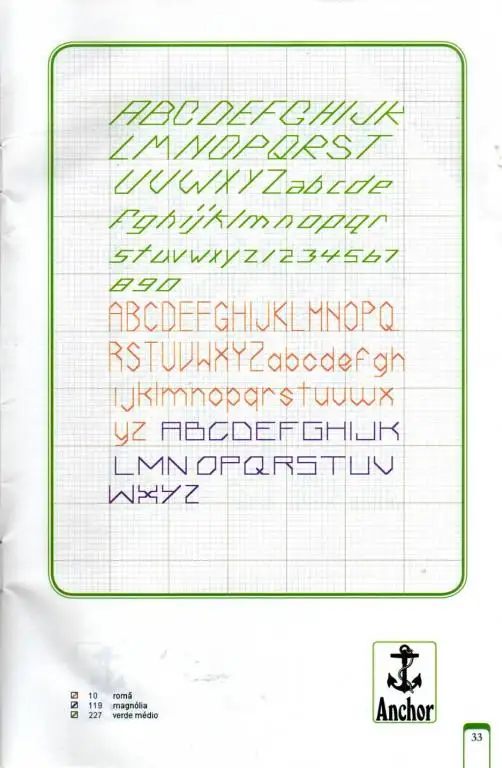 ABCDEFGHIJK
LMNOPQRST
UVWXYZabcde
fghijklmnopqr
stuvwxyz1234567
890
ABCDEFGHIJKLMNOPQ
RSTUVWXYZabcdefgh
ijklmnopqrstuvwx
yz ABCDEFGHIJK
LMNOPQRSTUV
WXYZ
10 romã
119 magnólia
227 verde médio
Anchor
33